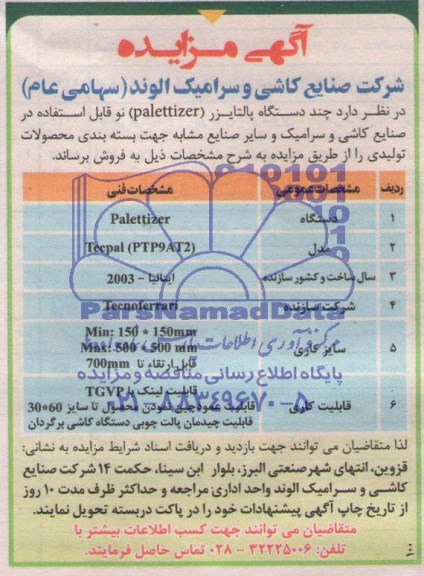 آگهی مزایده
شرکت صنایع کاشی و سرامیک الوند (سهامی عام)
در نظر دارد چند دستگاه پالتایزر (palettizer) نو قابل استفاده در
صنایع کاشی و سرامیک و سایر صنایع مشابه جهت بسته بندی محصولات
تولیدی را از طریق مزایده به شرح مشخصات ذیل به فروش برساند.
ردیف مشخصات عمومی مشخصات فنی
۱ دستگاه Palettizer
۲ مدل Tecpal (PTP9AT2)
۳ سال ساخت و کشور سازنده ایتالیا - 2003
۴ شرکت سازنده Tecnoferrari
۵ سایز کاری Min: 150 * 150mm
Max: 500 * 500 mm
قابل ارتقاء تا 700mm
۶ قابلیت کاری قابلیت لینک با TGVP
قابلیت عمودچین نمودن محصول تا سایز 60*30
قابلیت چیدمان پالت چوبی دستگاه کاشی برگردان
ParsNamadData
پایگاه اطلاع رسانی مناقصه و مزایده
۰۲۱-۸۸۳۴۹۶۷۰-۵
لذا متقاضیان می توانند جهت بازدید و دریافت اسناد شرایط مزایده به نشانی:
قزوین، انتهای شهرصنعتی البرز، بلوار ابن سینا، حکمت ۱۴ شرکت صنایع
کاشی و سرامیک الوند واحد اداری مراجعه و حداکثر ظرف مدت ۱۰ روز
از تاریخ چاپ آگهی پیشنهادات خود را در پاکت دربسته تحویل نمایند.
متقاضیان می توانند جهت کسب اطلاعات بیشتر با
تلفن: ۳۲۲۲۵۰۰۶ - ۰۲۸ تماس حاصل فرمایند.